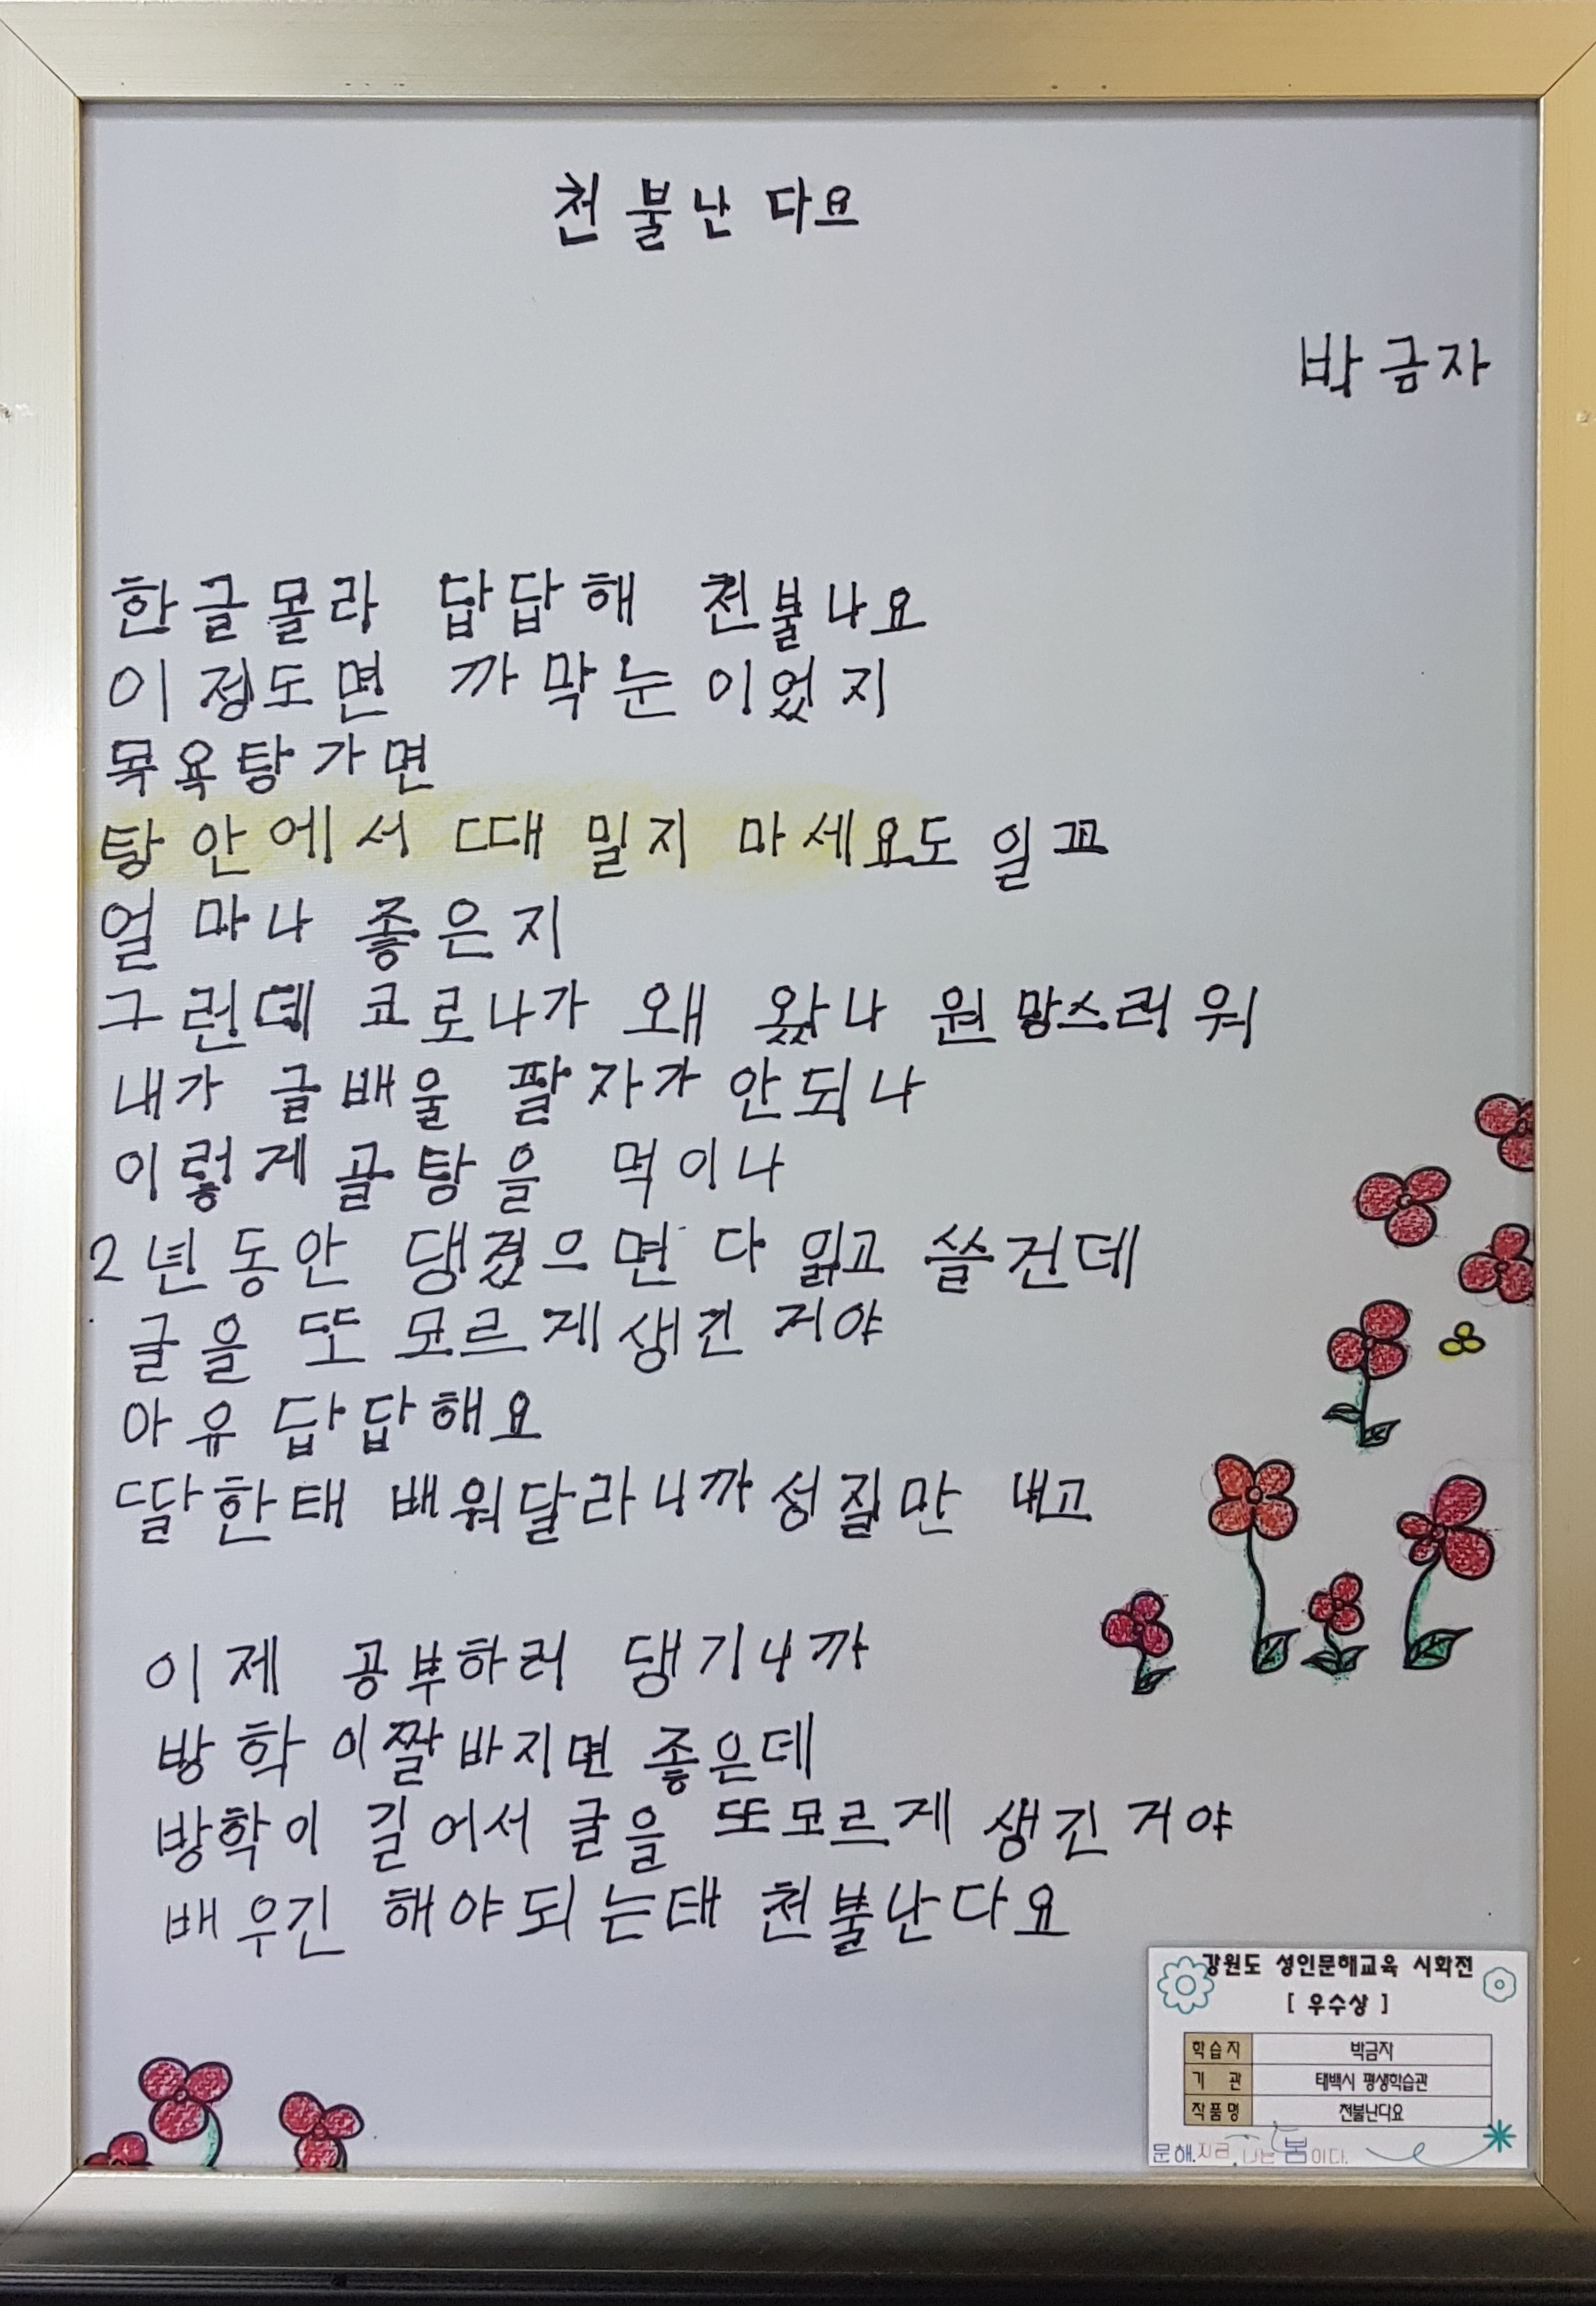 천불난다요
박금자
한글몰라 답답해 천불나요
이정도면 까막눈이었지
목욕탕가면
탕안에서 때 밀지 마세요도 일꼬
얼마나 좋은지
그런데 코로나가 왜 왔나 원망스러워
내가 글배울 팔자가 안되나
이렇게골탕을 먹이나
2년동안 댕겼으면 다 읽고 쓸건데
글을 또 모르게생긴 거야
아유 답답해요
딸한태 배워달라니까성질만 내고
이제 공부하러 댕기니까
방학이짤바지면 좋은데
방학이 길어서 글을 또모르게 생긴거야
배우긴 해야되는태 천불난다요
강원도 성인문해교육 시화전
[ 우수상 ]
학습자 박금자
기 관 태백시 평생학습관
작품명 천불난다요
문해. 지금, 나는 봄이다.